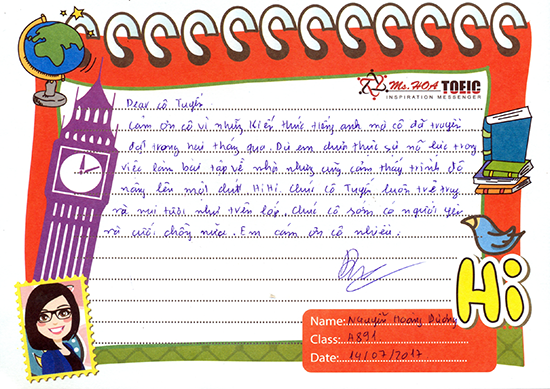 Ms. HOA TOEIC
INSPIRATION MESSENGER
Dear cô Tuyến
Cảm ơn cô vì những kiến thức tiếng anh mà cô đã truyền
đạt trong hai tháng qua. Dù em chưa thực sự nỗ lực trong
việc làm bài tập về nhà nhưng cũng cảm thấy trình độ
nâng lên một chút HiHi. Chúc cô Tuyến luôn trẻ trung
và vui tươi như trên lớp. Chúc cô sớm có người yêu
và cưới chồng nữa. Em cảm ơn cô nhiều.
Hi
Name: Nguyễn Hoàng Dương
Class: A891
Date: 14/07/2017